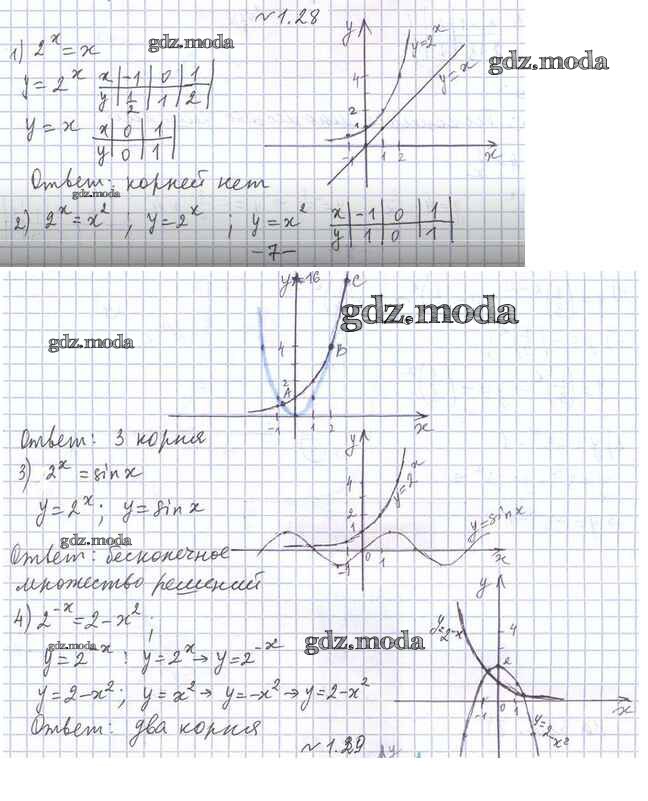 № 1.28
1) 2^x = x
gdz.moda
y = 2^x
x | -1 | 0 | 1
y | 1/2 | 1 | 2
y = x
x | 0 | 1
y | 0 | 1
y
y=2^x
y=x
gdz.moda
4
2
1
-1 1 2 x
Ответ: корней нет
gdz.moda
2) 2^x = x^2 ; y = 2^x ; y = x^2
x | -1 | 0 | 1
y | 1 | 0 | 1
-7-
y=16 C
gdz.moda
gdz.moda
4 B
2
A
-1 1 2 x
Ответ: 3 корня
3) 2^x = sin x
y = 2^x ; y = sin x
y
4
2
1
y=2^x
y=sin x
-1 0 1 x
gdz.moda
Ответ: бесконечное
множество решений
4) 2^-x = 2 - x^2 ;
gdz.moda
gdz.moda
y = 2^-x : y = 2^x → y = 2^-x
y = 2-x^2 ; y = x^2 → y = -x^2 → y = 2-x^2
Ответ: два корня
y
y=2^-x
4
2
-1 0 1 x
y=2-x^2
№ 1.29